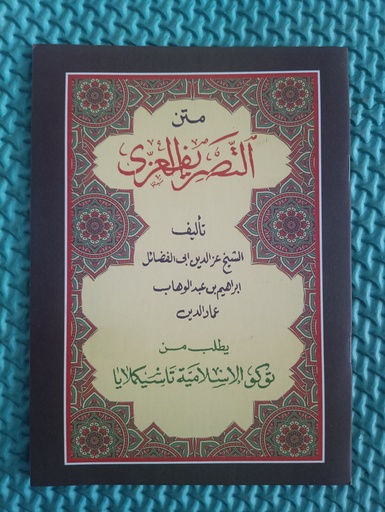 متن
التصريف العزى
تأليف
الشيخ عز الدين ابى الفضائل
ابراهيم بن عبد الوهاب
عماد الدين
يطلب من
توكو الاسلامية تاسيكملايا